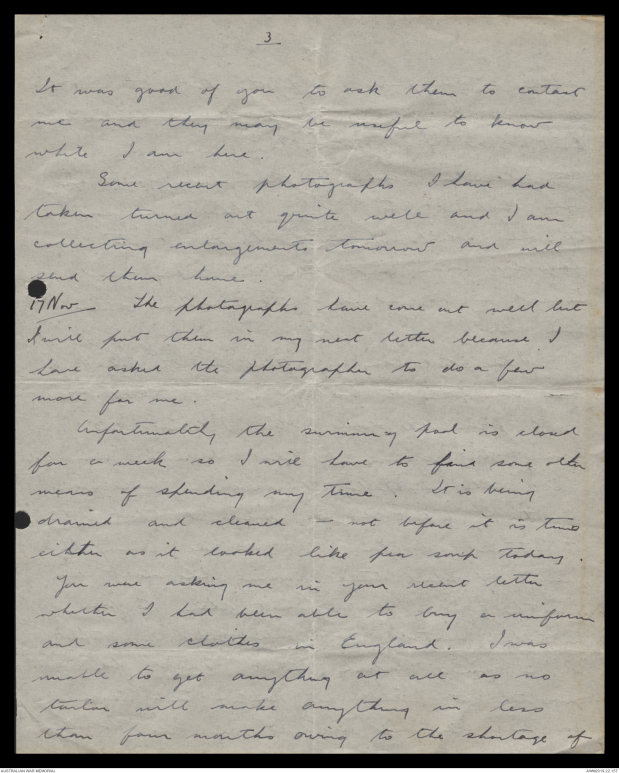 3
It was good of you to ask them to contact
me and they may be useful to know
while I am here.
Some recent photographs I have had
taken turned out quite well and I am
collecting enlargements tomorrow and will
send them home.
17 Nov The photographs have come out well but
I will put them in my next letter because I
have asked the photographer to do a few
more for me.
Unfortunately the swimming pool is closed
for a week so I will have to find some other
means of spending my time. It is being
drained and cleaned – not before it is time
either as it looked like pea soup today.
You were asking me in your recent letter
whether I had been able to buy a uniform
and some clothes in England. I was
unable to get anything at all as no
tailor will make anything in less
than four months owing to the shortage of
AUSTRALIAN WAR MEMORIAL